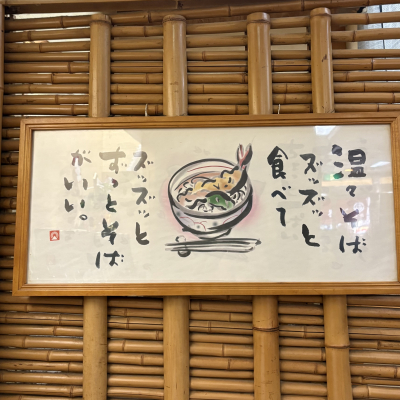 温々そば
ズッズッと
食べて
ズッズッと
ずっとそば
がいい。